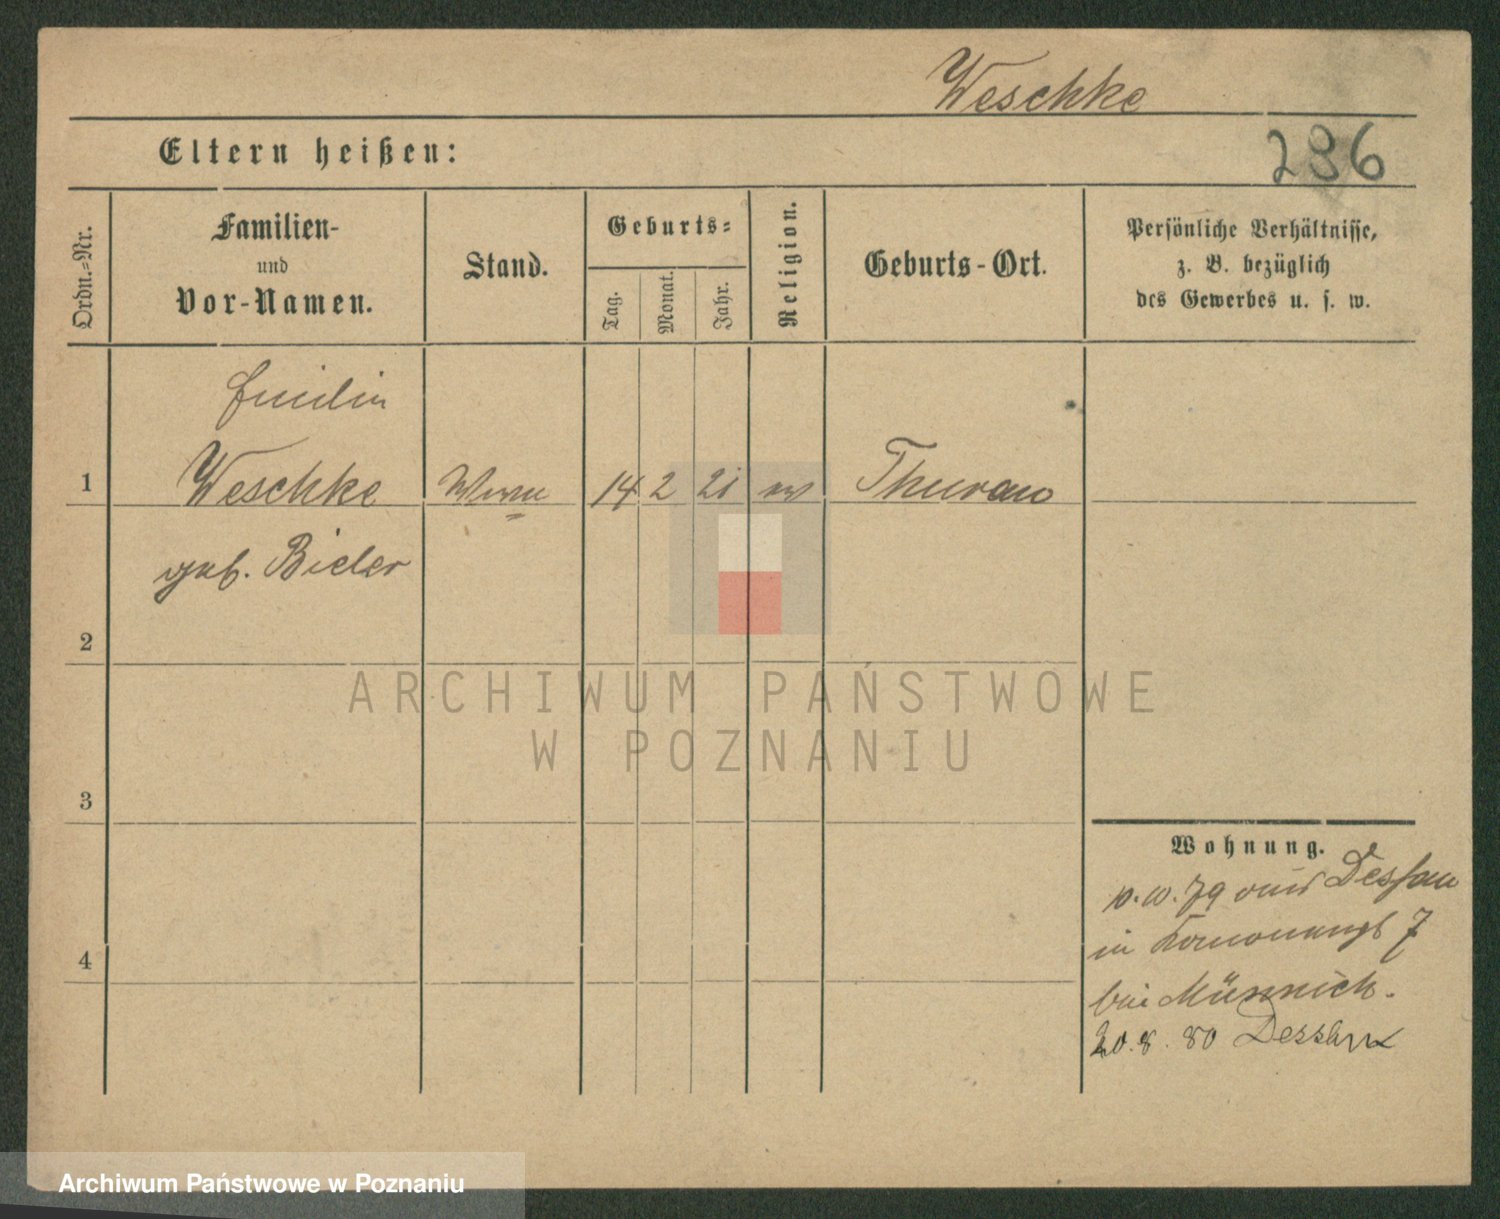 Weschke
Eltern heißen:
236
Ordn.=Nr.
Familien-
und
Vor-Namen.
Stand.
Geburts=
Tag.
Monat.
Jahr.
Religion.
Geburts-Ort.
Persönliche Verhältnisse,
z. B. bezüglich
des Gewerbes u. s. w.
Emilie
1 Weschke Wwe 14 2 21 ev Thurau
geb. Bieler
2
3
4
Wohnung.
79 aus Dessau
in 7
bei Münnich.
20.8.80 Dessau
ARCHIWUM PAŃSTWOWE
W POZNANIU
Archiwum Państwowe w Poznaniu